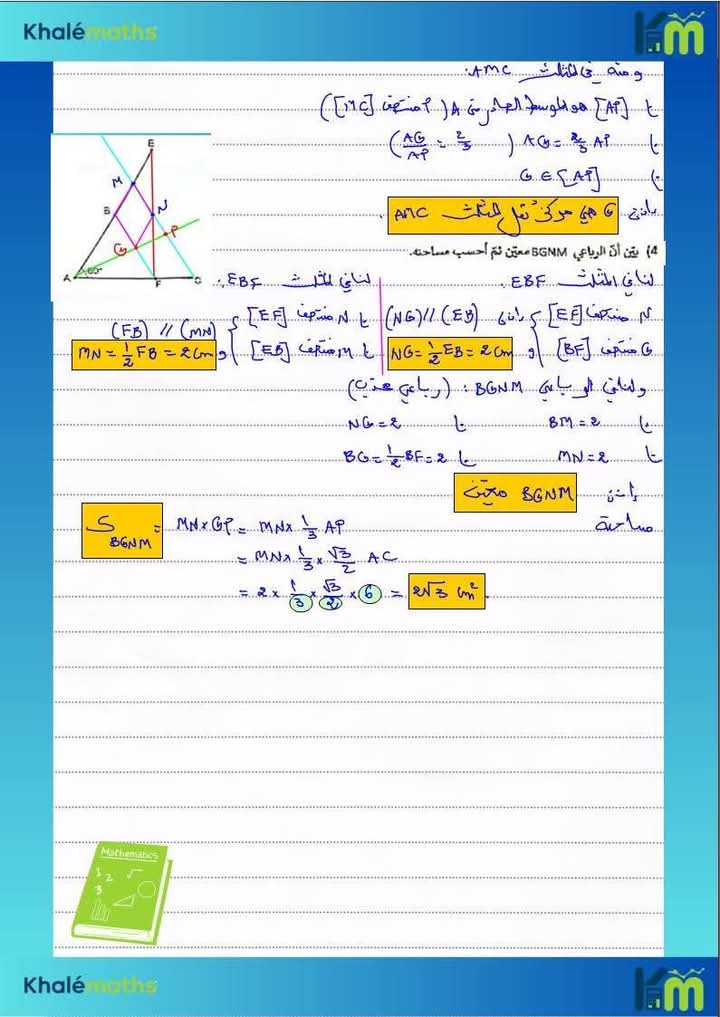 Khalémaths
Km
ومنه في المثلث AMC.
لنا [AP] هو الموسط الصادر من A (P منتصف [MC])
لنا AG = 2/3 AP (AG/AP = 2/3)
لنا G ∈ [AP]
بإذن G هي مركز ثقل المثلث AMC.
E
M
B
N
G
P
A
60°
F
C
4) بيّن أنّ الرباعي BGNM معيّن ثمّ أحسب مساحته.
لنا في المثلث EBF.
N منتصف [EF]
G منتصف [BF]
(NG) // (EB)
و NG = 1/2 EB = 2 cm
لنا في المثلث EBF.
لنا N منتصف [EF]
لنا M منتصف [EB]
(FB) // (MN)
و MN = 1/2 FB = 2 cm
ولنا في الرباعي BGNM: (رباعي محدب)
لنا BM = 2 لنا NG = 2
لنا MN = 2 لنا BG = 1/2 BF = 2
إذن BGNM معيّن
مساحة
S BGNM = MN × GP = MN × 1/3 AP
= MN × 1/3 × √3/2 AC
= 2 × 1/3 × √3/2 × 6 = 2√3 cm².
Mathematics
1 2 √
3
Khalémaths
Km